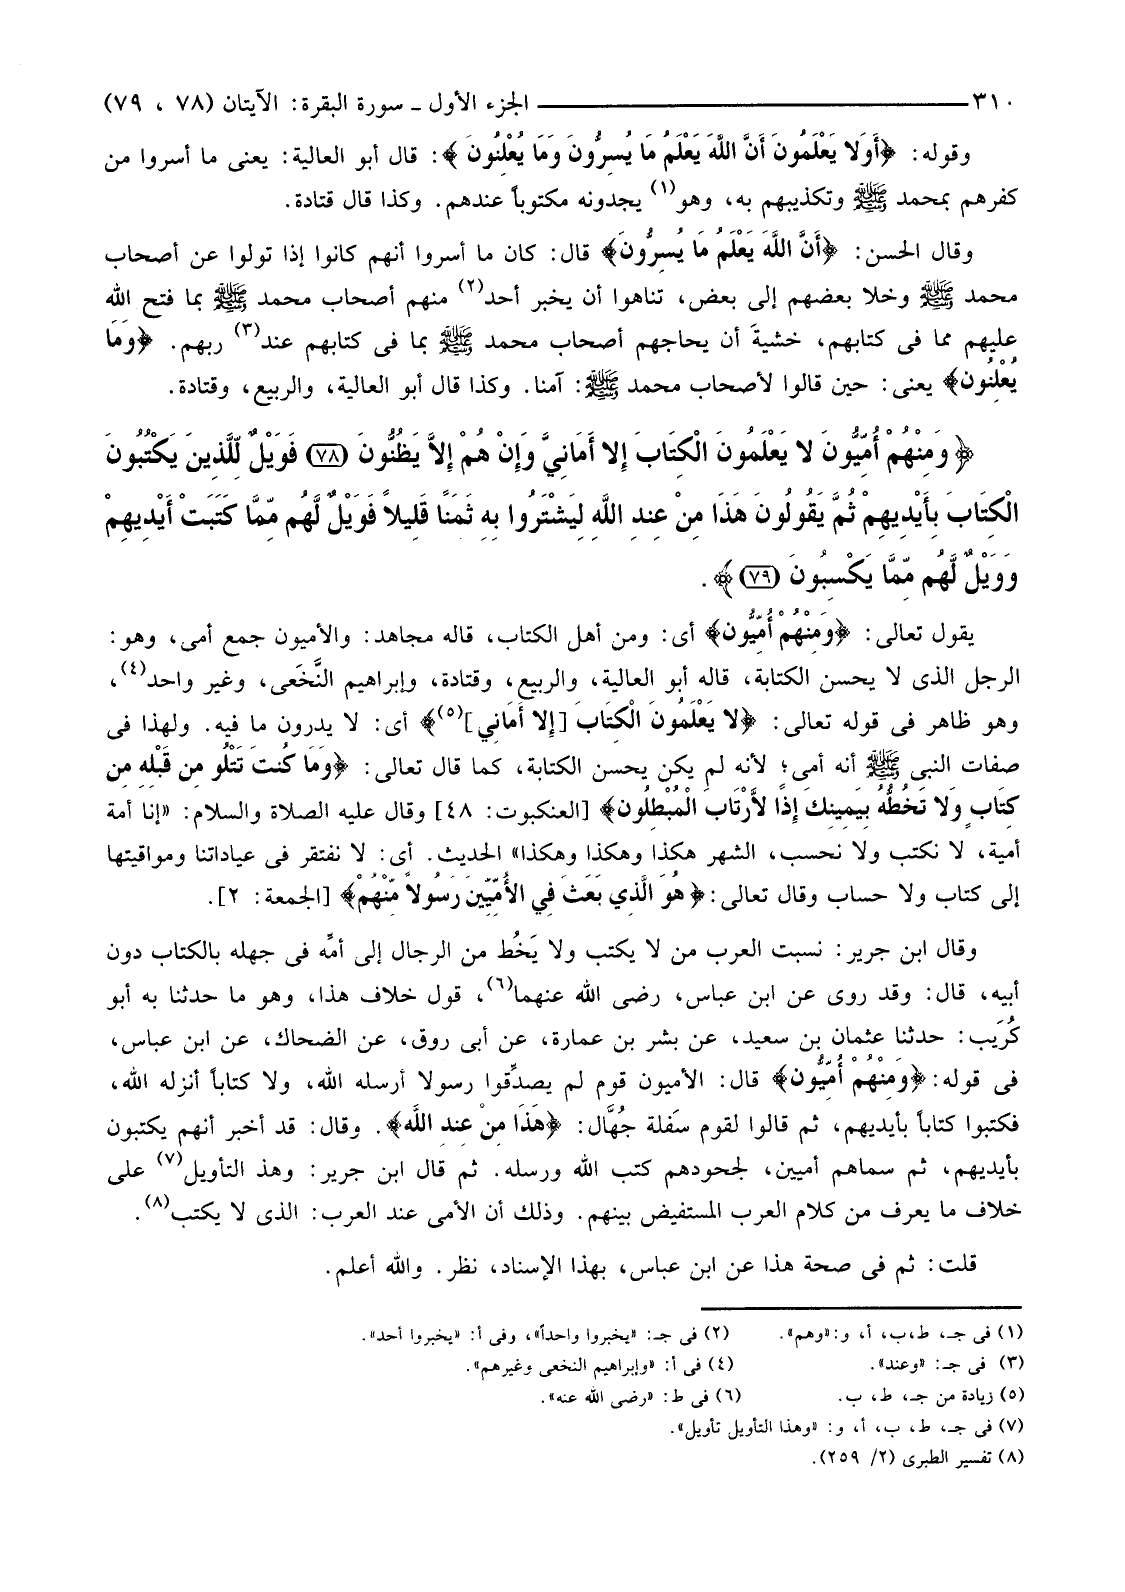 ٣١٠ ـــــــــــــــــــــــــــــــــ الجزء الأول ـ سورة البقرة: الآيتان (٧٨ ، ٧٩)
وقوله: ﴿أَوَلا يَعْلَمُونَ أَنَّ اللَّهَ يَعْلَمُ مَا يُسِرُّونَ وَمَا يُعْلِنُونَ ﴾: قال أبو العالية: يعنى ما أسروا من
كفرهم بمحمد ﷺ وتكذيبهم به، وهو(١) يجدونه مكتوباً عندهم. وكذا قال قتادة.
وقال الحسن: ﴿أَنَّ اللَّهَ يَعْلَمُ مَا يُسِرُّونَ﴾ قال: كان ما أسروا أنهم كانوا إذا تولوا عن أصحاب
محمد ﷺ وخلا بعضهم إلى بعض، تناهوا أن يخبر أحد(٢) منهم أصحاب محمد ﷺ بما فتح الله
عليهم مما فى كتابهم، خشيةَ أن يحاجهم أصحاب محمد ﷺ بما فى كتابهم عند(٣) ربهم. ﴿وَمَا
يُعْلِنُون﴾ يعنى: حين قالوا لأصحاب محمد ﷺ: آمنا. وكذا قال أبو العالية، والربيع، وقتادة.
﴿وَمِنْهُمْ أُمِّيُّونَ لا يَعْلَمُونَ الْكِتَابَ إِلا أَمَانِيَّ وَإِنْ هُمْ إِلاَّ يَظُنُّونَ (٧٨) فَوَيْلٌ لِّلَّذِينَ يَكْتُبُونَ
الْكِتَابَ بِأَيْدِيهِمْ ثُمَّ يَقُولُونَ هَذَا مِنْ عِندِ اللَّهِ لِيَشْتَرُوا بِهِ ثَمَنًا قَلِيلاً فَوَيْلٌ لَّهُم مِّمَّا كَتَبَتْ أَيْدِيهِمْ
وَوَيْلٌ لَّهُم مِّمَّا يَكْسِبُونَ (٧٩)﴾.
يقول تعالى: ﴿وَمِنْهُمْ أُمِّيُّون﴾ أى: ومن أهل الكتاب، قاله مجاهد: والأميون جمع أمى، وهو:
الرجل الذى لا يحسن الكتابة، قاله أبو العالية، والربيع، وقتادة، وإبراهيم النَّخَعى، وغير واحد(٤)،
وهو ظاهر فى قوله تعالى: ﴿لا يَعْلَمُونَ الْكِتَابَ [إِلا أَمَاني](٥)﴾ أى: لا يدرون ما فيه. ولهذا فى
صفات النبى ﷺ أنه أمى؛ لأنه لم يكن يحسن الكتابة، كما قال تعالى: ﴿وَمَا كُنتَ تَتْلُو مِن قَبْلِهِ مِن
كِتَابٍ وَلا تَخُطُّهُ بِيَمِينِكَ إِذًا لأَرْتَابَ الْمُبْطِلُون﴾ [العنكبوت: ٤٨] وقال عليه الصلاة والسلام: «إنا أمة
أمية، لا نكتب ولا نحسب، الشهر هكذا وهكذا وهكذا» الحديث. أى: لا نفتقر فى عياداتنا ومواقيتها
إلى كتاب ولا حساب وقال تعالى:﴿هُوَ الَّذِي بَعَثَ فِي الأُمِّيِّينَ رَسُولاً مِّنْهُمْ﴾ [الجمعة: ٢].
وقال ابن جرير: نسبت العرب من لا يكتب ولا يَخُط من الرجال إلى أمِّه فى جهله بالكتاب دون
أبيه، قال: وقد روى عن ابن عباس، رضى الله عنهما(٦)، قول خلاف هذا، وهو ما حدثنا به أبو
كُرَيب: حدثنا عثمان بن سعيد، عن بشر بن عمارة، عن أبى روق، عن الضحاك، عن ابن عباس،
فى قوله:﴿وَمِنْهُمْ أُمِّيُّون﴾ قال: الأميون قوم لم يصدِّقوا رسولا أرسله الله، ولا كتاباً أنزله الله،
فكتبوا كتاباً بأيديهم، ثم قالوا لقوم سَفلة جُهَّال: ﴿هَذَا مِنْ عِندِ اللَّه﴾. وقال: قد أخبر أنهم يكتبون
بأيديهم، ثم سماهم أميين، لجحودهم كتب الله ورسله. ثم قال ابن جرير: وهذ التأويل(٧) على
خلاف ما يعرف من كلام العرب المستفيض بينهم. وذلك أن الأمى عند العرب: الذى لا يكتب(٨).
قلت: ثم فى صحة هذا عن ابن عباس، بهذا الإسناد، نظر. والله أعلم.
(١) فى جـ، ط،ب، أ، و:«وهم». (٢) فى جـ: «يخبروا واحداً»، وفى أ: «يخبروا أحد».
(٣) فى جـ: «وعند». (٤) فى أ: «وإبراهيم النخعى وغيرهم».
(٥) زيادة من جـ، ط، ب. (٦) فى ط: «رضى الله عنه».
(٧) فى جـ، ط، ب، أ، و: «وهذا التأويل تأويل».
(٨) تفسير الطبرى (٢/ ٢٥٩).